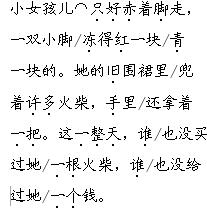 小女孩儿⌒只好赤着脚走，
一双小脚/冻得红一块/青
一块的。她的旧围裙里/兜
着许多火柴，手里/还拿着
一把。这一整天，谁/也没买
过她/一根火柴，谁/也没给
过她/一个钱。